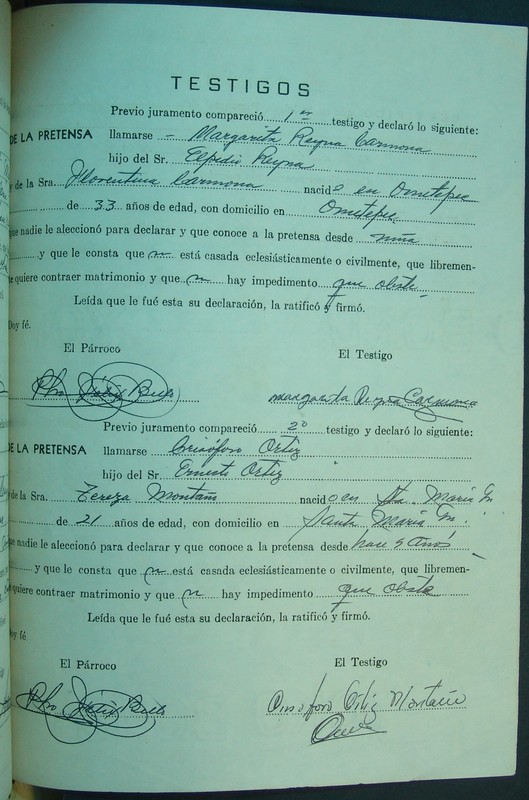 TESTIGOS
Previo juramento compareció 1er testigo y declaró lo siguiente:
DE LA PRETENSA llamarse - Margarita Reyna Carmona
hijo del Sr. Elpidio Reyna
de la Sra. Florentina Carmona nacido en Ometepec
de 33 años de edad, con domicilio en Ometepec
que nadie le aleccionó para declarar y que conoce a la pretensa desde niña
y que le consta que no está casada eclesiásticamente o civilmente, que libremen-
te quiere contraer matrimonio y que no hay impedimento que obste
Leída que le fué esta su declaración, la ratificó y firmó.
Doy fé.
El Párroco El Testigo
Pbro
Margarita Reyna Carmona
Previo juramento compareció 2º testigo y declaró lo siguiente:
DE LA PRETENSA llamarse Crisóforo Ortiz
hijo del Sr. Ernesto Ortiz
y de la Sra. Tereza Montaño nacido en Sta María M.
de 21 años de edad, con domicilio en Santa María M.
que nadie le aleccionó para declarar y que conoce a la pretensa desde hace 5 años
y que le consta que no está casada eclesiásticamente o civilmente, que libremen-
quiere contraer matrimonio y que no hay impedimento que obste
Leída que le fué esta su declaración, la ratificó y firmó.
Doy fé
El Párroco El Testigo
Pbro
Crisoforo Ortiz Montaño